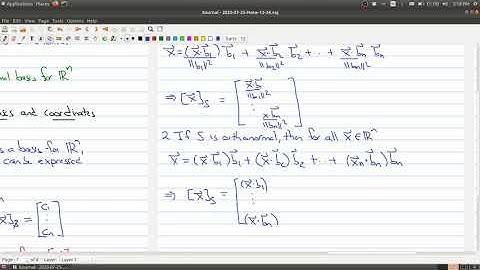 Applications Places
2:58 PM
Xournal - 2020-07-25-Note-13-34.xoj
Sans 12
nal basis for ℝⁿ
asis and coordinates
s a basis for ℝⁿ,
can be expressed
x]_B = [c₁ ⋮ cₙ]
x⃗ = (x⃗·b⃗₁)/||b₁||² b⃗₁ + x⃗·b⃗₂/||b₂||² b₂ + ··· + x⃗·b⃗n/||bn||² b⃗n
⇒ [x⃗]_S = [x⃗·b⃗/||b₁||² ⋮ x·b⃗n/||bn||²]
2 If S is orthonormal, then for all x⃗∈ℝⁿ
x⃗ = (x⃗·b⃗₁)b⃗₁ + (x⃗·b⃗₂)b⃗₂ + ··· + (x⃗n·b⃗n)b⃗n
⇒ [x⃗]_S = [(x⃗·b⃗₁) ⋮ (x⃗·b⃗n)]
Page
Layer
Layer 1